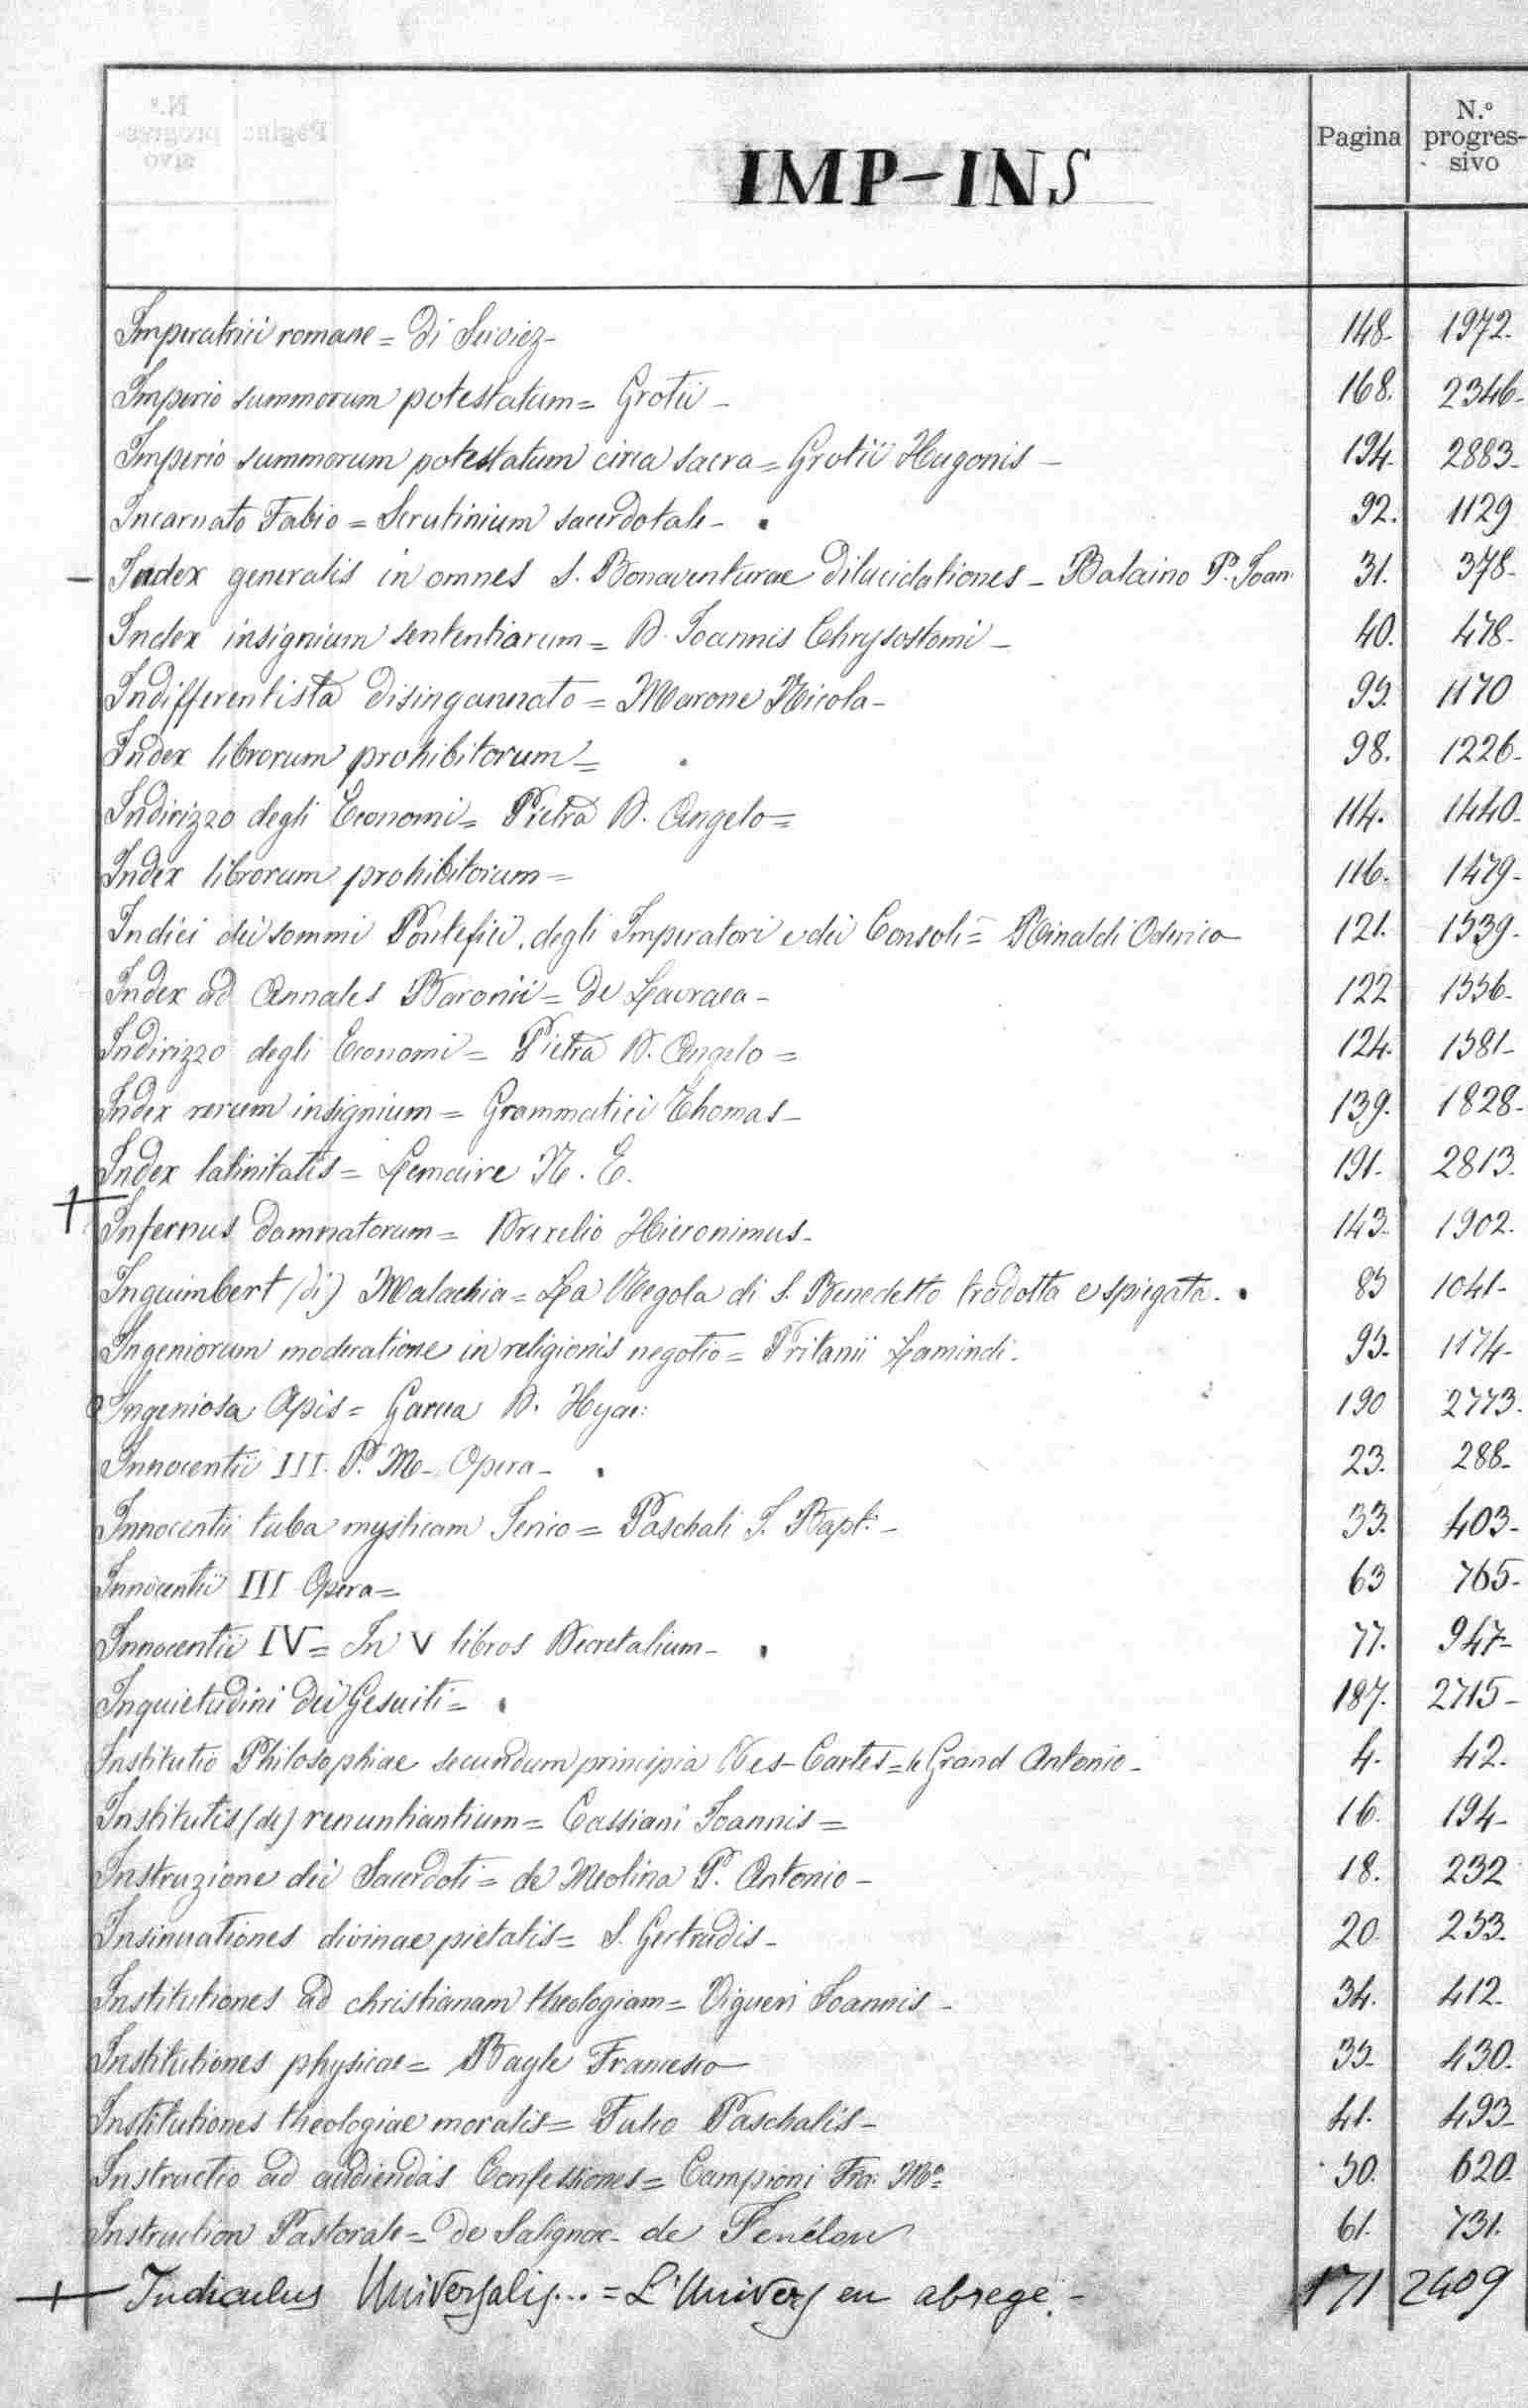 Pagina N.º progres-sivo
IMP-INS
Imperatrici romane = di Serviez - 148. 1972.
Imperio summorum potestatum = Grotii - 168. 2346-
Imperio summorum potestatum circa sacra = Grotii Hugonis - 194. 2883-
Incarnato Fabio = Scrutinium sacerdotale - 92. 1129
- Index generalis in omnes S. Bonaventurae dilucidationes - Balaino P. Joan. 31. 378-
Index insignium sententiarum = D. Joannis Chrysostomi - 40. 478-
Indifferentista disingannato = Marone Nicola - 95. 1170
Index librorum prohibitorum = 98. 1226-
Indirizzo degli Economi = Pietra D. Angelo = 114. 1440-
Index librorum prohibitorum = 116. 1479-
Indici dei sommi Pontefici, degli Imperatori e dei Consoli = Rinaldi Oderico 121. 1539-
Index ad Annales Baronii = de Lauraea - 122 1556-
Indirizzo degli Economi = Pietra D. Angelo = 124. 1581-
Index rerum insignium = Grammatici Thomas - 139. 1828-
Index latinitatis = Lemaire N. E. 191. 2813.
+ Infernus damnatorum = Drexelio Hieronimus - 143. 1902.
Inguimbert (di) Malachia = La Regola di S. Benedetto tradotta e spiegata. 85 1041-
Ingeniorum moderatione in religionis negotio = Pritanii Lamindi. 95- 1174-
Ingeniosa Apis = Garcia D. Hyac: 190 2773.
Innocentii III. P. M - Opera - 23. 288-
Innocentii tuba mysticam Serico = Paschali J. Bapt: - 33. 403-
Innocentii III Opera = 63 765-
Innocentii IV = In V libros Decretalium - 77. 947-
Inquietudini dei Gesuiti = 187. 2715-
Institutio Philosophiae secundum principia Des-Cartes = le Grand Antonio - 4. 42.
Institutis (de) renuntiantium = Cassiani Joannis = 16. 194-
Instruzione dei Sacerdoti = de Molina P. Antonio - 18. 232
Insinuationes divinae pietatis = S. Gertrudis - 20. 253.
Institutiones ad christianam theologiam = Vigueri Joannis - 34. 412.
Institutiones physicae = Bayle Francesco 35- 430.
Institutiones theologiae moralis = Tulio Paschalis - 41. 493-
Instructio ad audiendas Confessiones = Campioni Fra: Mª 50. 620.
Instruction Pastorale = de Salignac - de Fenélon 61. 731.
+ Indiculus Universalis... = L'Univers en abrege. - 171 2409